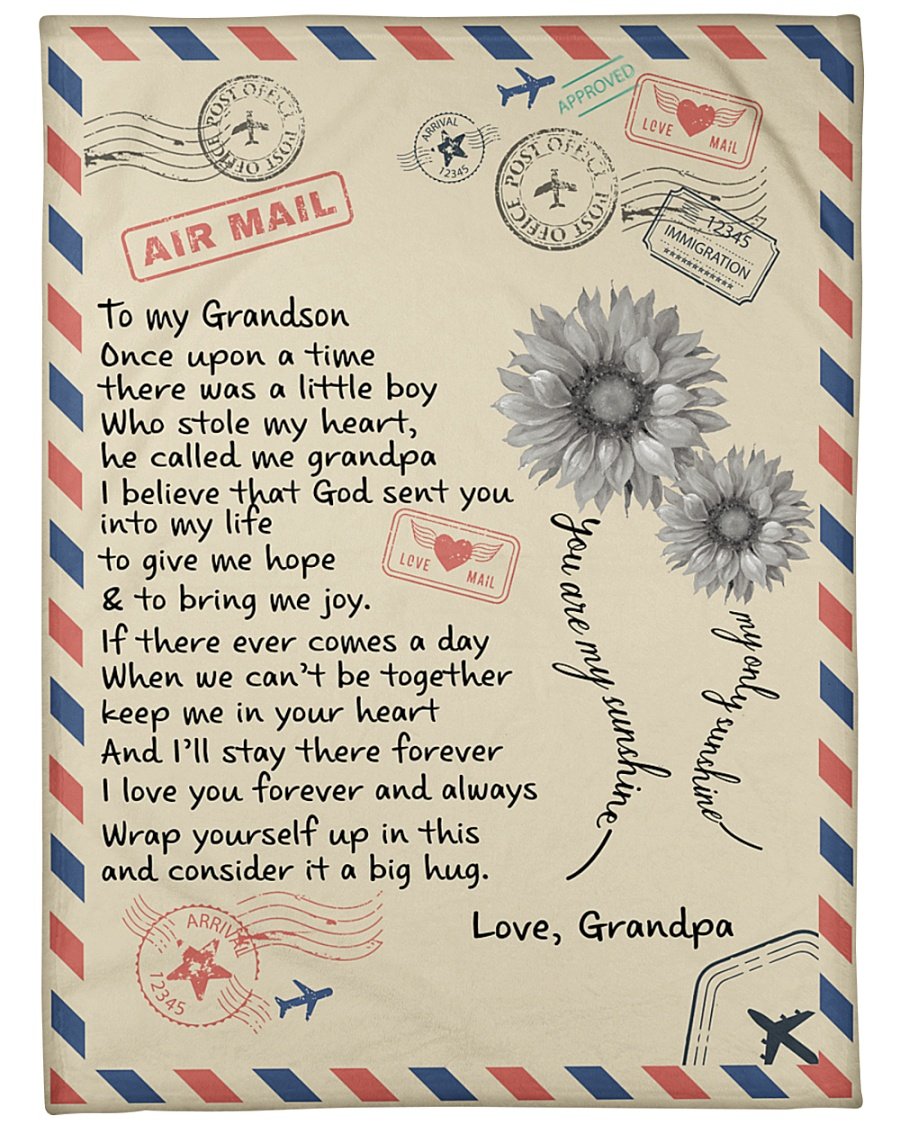 POST OFFICE POST OFFICE
ARRIVAL
12345
APPROVED
LOVE MAIL
POST OFFICE POST OFFICE
12345
IMMIGRATION
AIR MAIL
To my Grandson
Once upon a time
there was a little boy
Who stole my heart,
he called me grandpa
I believe that God sent you
into my life
to give me hope
& to bring me joy.
If there ever comes a day
When we can't be together
keep me in your heart
And I'll stay there forever
I love you forever and always
Wrap yourself up in this
and consider it a big hug.
LOVE MAIL
You are my sunshine
my only sunshine
Love, Grandpa
ARRIVAL
12345